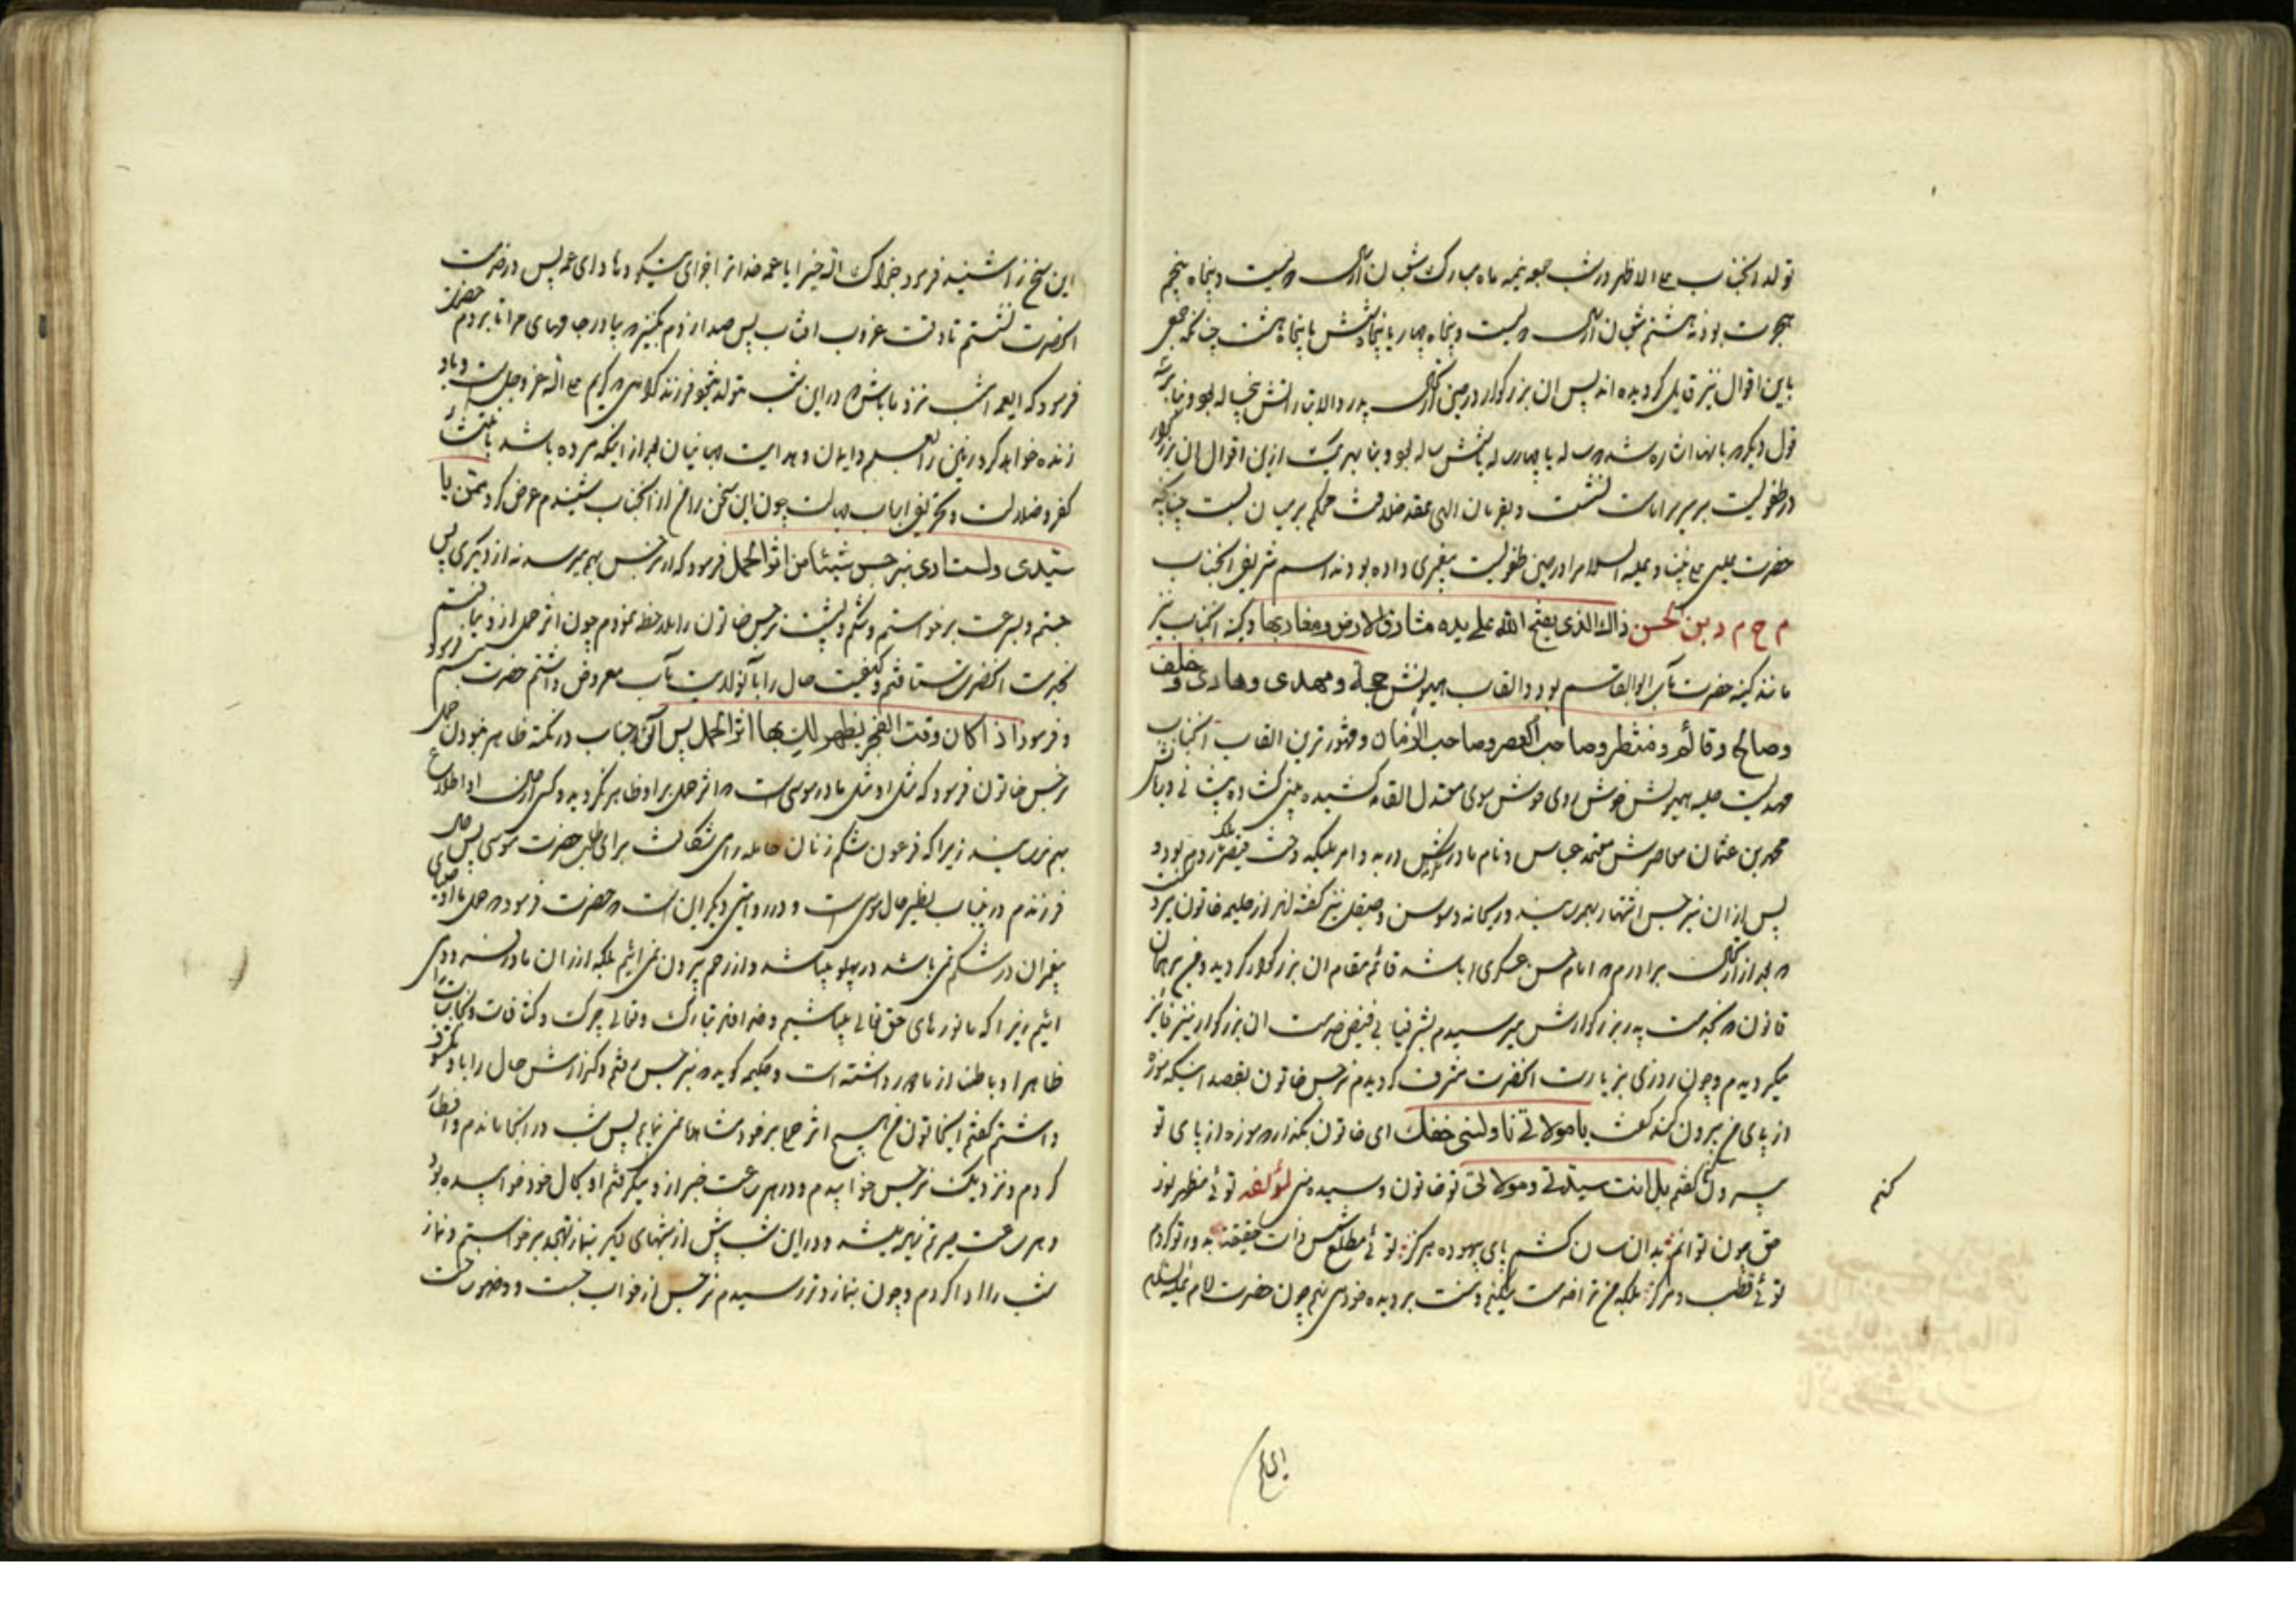 تولد انجناب علی الاظهر در شب جمعه نیمه ماه مبارک شعبان از سال دویست و پنجاه پنجم
هجرت بود نه هشتم شعبان از سال دویست و پنجاه چهار یا پنجاه شش یا پنجاه هشت چنانکه جمعی
باین اقوال نیز قایل گردیده اند پس ان بزرگوار در حین پدر والاتبارش پنج ساله بود و بنابر
قول دیگر که بانها اشاره شد سه ساله یا چهار ساله یا شش ساله بود و بنا بهر یک ازین اقوال ان بزرگوار
در طفولیت بر سریر امامت نشست و بفرمان الهی عقد خلافت محکم بر میان بست چنانچه
حضرت عیسی علی نبینا و علیه السلام را در حین طفولیت پیغمبری داده بودند اسم شریف انجناب
م ح م د بن الحسن ذاك الذی یفتح الله علی یده مشارق الارض و مغاربها و کنیه انجناب نیز
مانند کنیه حضرت رسالت ماب ابوالقاسم بود و القاب همیونش حجة و مهدی و هادی و خلف
و صالح و قائم و منتظر و صاحب العصر و صاحب الزمان و مشهورترین القاب انجناب
مهدیست حلیه همیونش خوش روی خوش موی معتدل القامه کشیده بینی گشاده پیشانی دربانش
محمد بن عثمان معاصرش معتمد عباس و نام مادرش در بدو امر ملیکه دخت قیصر ملک روم بود و
پس از ان نرجس اشتهار بهمرسانید و ریحانه و سوسن و صیقل نیز گفته اند از حلیمه خاتون
که بعد از برادرم که امام حسن عسکری باشد قائم مقام ان بزرگوار گردید و من بر همان
قانون که بخدمت پدر بزرگوارش میرسیدم بشرفیابی فیض خدمت ان بزرگوار نیز فایز
میگردیدم و چون روزی بزیارت انحضرت مشرف گردیدم نرجس خاتون بقصد اینکه موزه
از پای من بیرون کند گفت یا مولاتی ناولینی خفك ای خاتون بگذار که موزه از پای تو
بیرون کنم گفتم بل انت سیدتی و مولاتی تو خاتون و سیده منی لمؤلفه توئی مظهر نور
حق چون توانم بدان سان کشم پای بیهوده هرگز توئی مطلع شمس ذات حقیقت
توئی قطب و مرکز بلکه من ترا خدمت میکنم و منت بر دیده خود می نهم چون حضرت امام علیه السلام
کنم
این سخن را شنید فرمود جزاك الله خیرا یا عمه خدا ترا جزای نیکو دهد ای عمه پس در خدمت
انحضرت نشستم تا وقت غروب افتاب پس صدا زدم بکنیز که بیاور جامهای مرا تا بروم حضرت
فرمود که ایعمه امشب نزد ما باش که در این شب متولد میشود فرزند گرامی کریم علی الله عز و جل
زنده خواهد کرد زمین را بعلم و ایمان و هدایت بعد از اینکه مرده باشد بانتشار
کفر و ضلالت چون این سخن را من از انجناب شنیدم عرض کردم ممن یا
سیدی و لست اری بنرجس شیئا من اثر الحمل فرمود که از نرجس بهم میرسد نه از دیگری پس
جستم و بسرعت برخواستم و شکم و پشت نرجس خاتون را ملاحظه نمودم چون اثر حمل از او نیافتم
بخدمت انحضرت شتافتم و کیفیت حال را معروض داشتم حضرت تبسم فرمود
و فرمود اذا کان وقت الفجر یظهر لك بها اثر الحمل پس در نکته ظاهر نبودن حمل
نرجس خاتون فرمود که مثل او مثل مادر موسی است که اثر حمل بر او ظاهر نگردید و کسی را اطلاع
بهم نرسید زیرا که فرعون شکم زنان حامله را می شکافت برای طلب حضرت موسی پس حال
فرزندم در غیاب نظیر حال موسی است و در روایتی دیگر این است که حضرت فرمود که حمل ما اوصیای
پیغمبران در شکم نمی باشد در پهلو میباشد و از رحم بیرون نمی ائیم بلکه از ران مادران فرود می
ائیم زیرا که ما نورهای حق تعالی میباشیم و خداوند تبارک و تعالی چرک و کثافات و نجاسات را
ظاهرا و باطنا از ما دور داشته است و حکیمه گوید که نزد نرجس رفتم و گزارش حال را با او
داشتم گفت ایخاتون من هیچ اثر حملی بر خود مشاهده نمی نمایم پس شب در انجا ماندم و افطار
کردم و نزدیک نرجس خوابیدم و در هر ساعت خبر از او میگرفتم او بحال خود خوابیده بود
و هر ساعت حیرتم زیاده میشد و در این شب بیش از شبهای دیگر بنماز تهجد برخواستم و نماز
شب را ادا کردم و چون بنماز وتر رسیدم نرجس از خواب جست و وضو ساخت